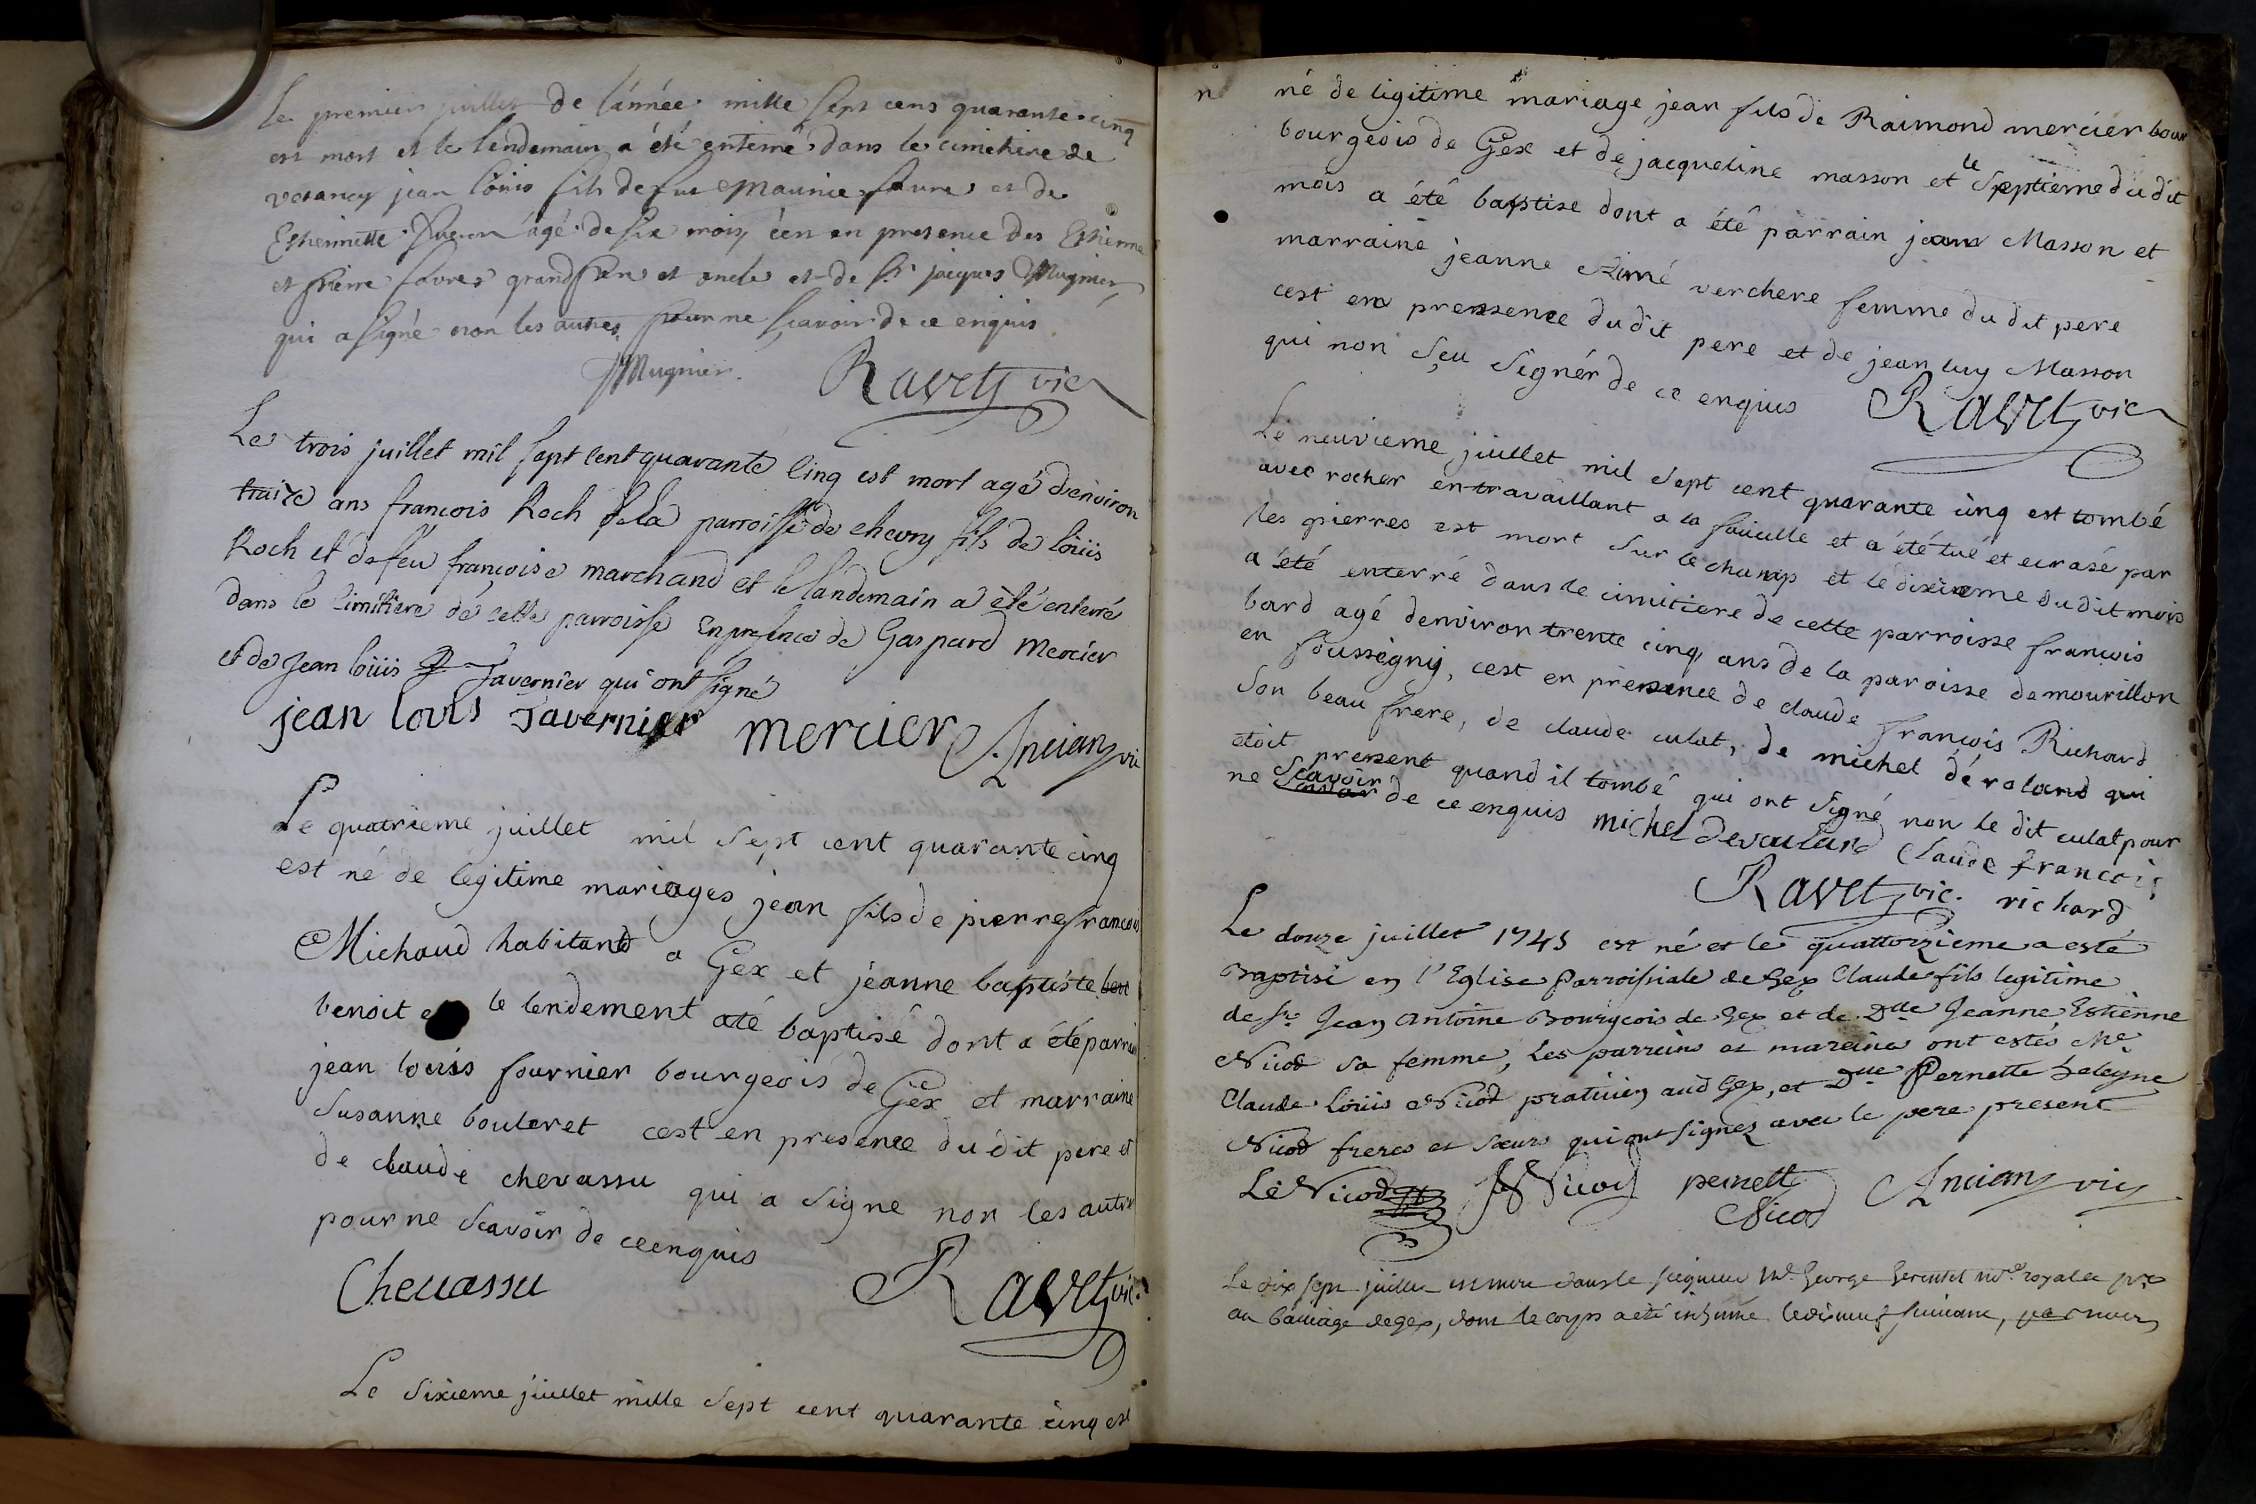 Le premier juillet de l'année mille sept cens quarante cinq
est mort et le lendemain a été enterré dans le cimetiere de
vesancy jean loüis fils de feu Maurice favre et de
Esthiennette agé de six mois, c'en en presence des Esthienne
et pierre favre grand pere et oncle et de Sr jacques Mugnier
qui a signé non les autres pour ne sçavoir de ce enquis
JMugnier. Ravet vic
Le trois juillet mil sept cent quarante cinq est mort agé d'environ
treize ans francois Roch de la parroisse de chevry fils de loüis
Roch et de feu françoise marchand et le landemain a été enterré
dans le cimitiere de cette parroisse en presence de Gaspard Mercier
et de Jean loüis Tavernier qui ont signé
jean lovis Tavernier mercier Ancian vic
Le quatrieme juillet mil sept cent quarante cinq
est né de legitime mariages jean fils de pierre francois
Michaud habitand a Gex et jéanne baptiste
benoit et le lendement até baptisé dont a été parrain
jean louis fournier bourgeois de Gex et marraine
Susanne bouleret cest en presence du dit pere et
de claude chevassu qui a signe non les autre
pour ne scavoir de ceenquis
Cheuassu Ravet vic.
Le sixieme juillet mille sept cent quarante cinq est
né de ligitime mariage jean fils de Raimond mercier bour
bourgeois de Gex et de jacqueline masson et le septieme du dit
mois a été baptise dont a été parrain jean Masson et
marraine jeanne Aimé verchere femme du dit pere
cest en prensence du dit pere et de jean luy Masson
qui non sçu signér de ce enquis Ravet vic
Le neuvieme juillet mil sept cent quarante cinq est tombé
avec rocher en travaillant a la faucille et a été tué et ecrasé par
les pierres est mort sur le champ et le dixieme du dit mois
a été enterré dans le cimitiere de cette parroisse francois
bard agé denviron trente cinq ans de la paroisse de mourillon
en foussegny, cest en presence de claude françois Richard
son beau frere, de claude culat, de michel déroland qui
etoit present quand il tombé qui ont signé non le dit culat pour
ne scavoir de ce enquis michel deroland claude francois
Ravet vic. richard
Le douze juillet 1745 est né et le quattorzieme a esté
Baptisé en l'Eglise Parroissiale de Gex Claude fils legitime
de Sr Jean Antoine Bourgeois de Gex et de Dlle Jeanne Estienne
Nicod sa femme, Les parrein et mareine ont estés Me
Claude Loüis Nicod praticien aud Gex, et Dlle Pernette
Nicod freres et soeurs qui ont signez avec le pere present
Le Nicod Nicod pernette Nicod Ancian vic
Le dix sept juillet est mort dans le seigneur Mr George
au bailliage de Gex, dont le corps a été inhumé